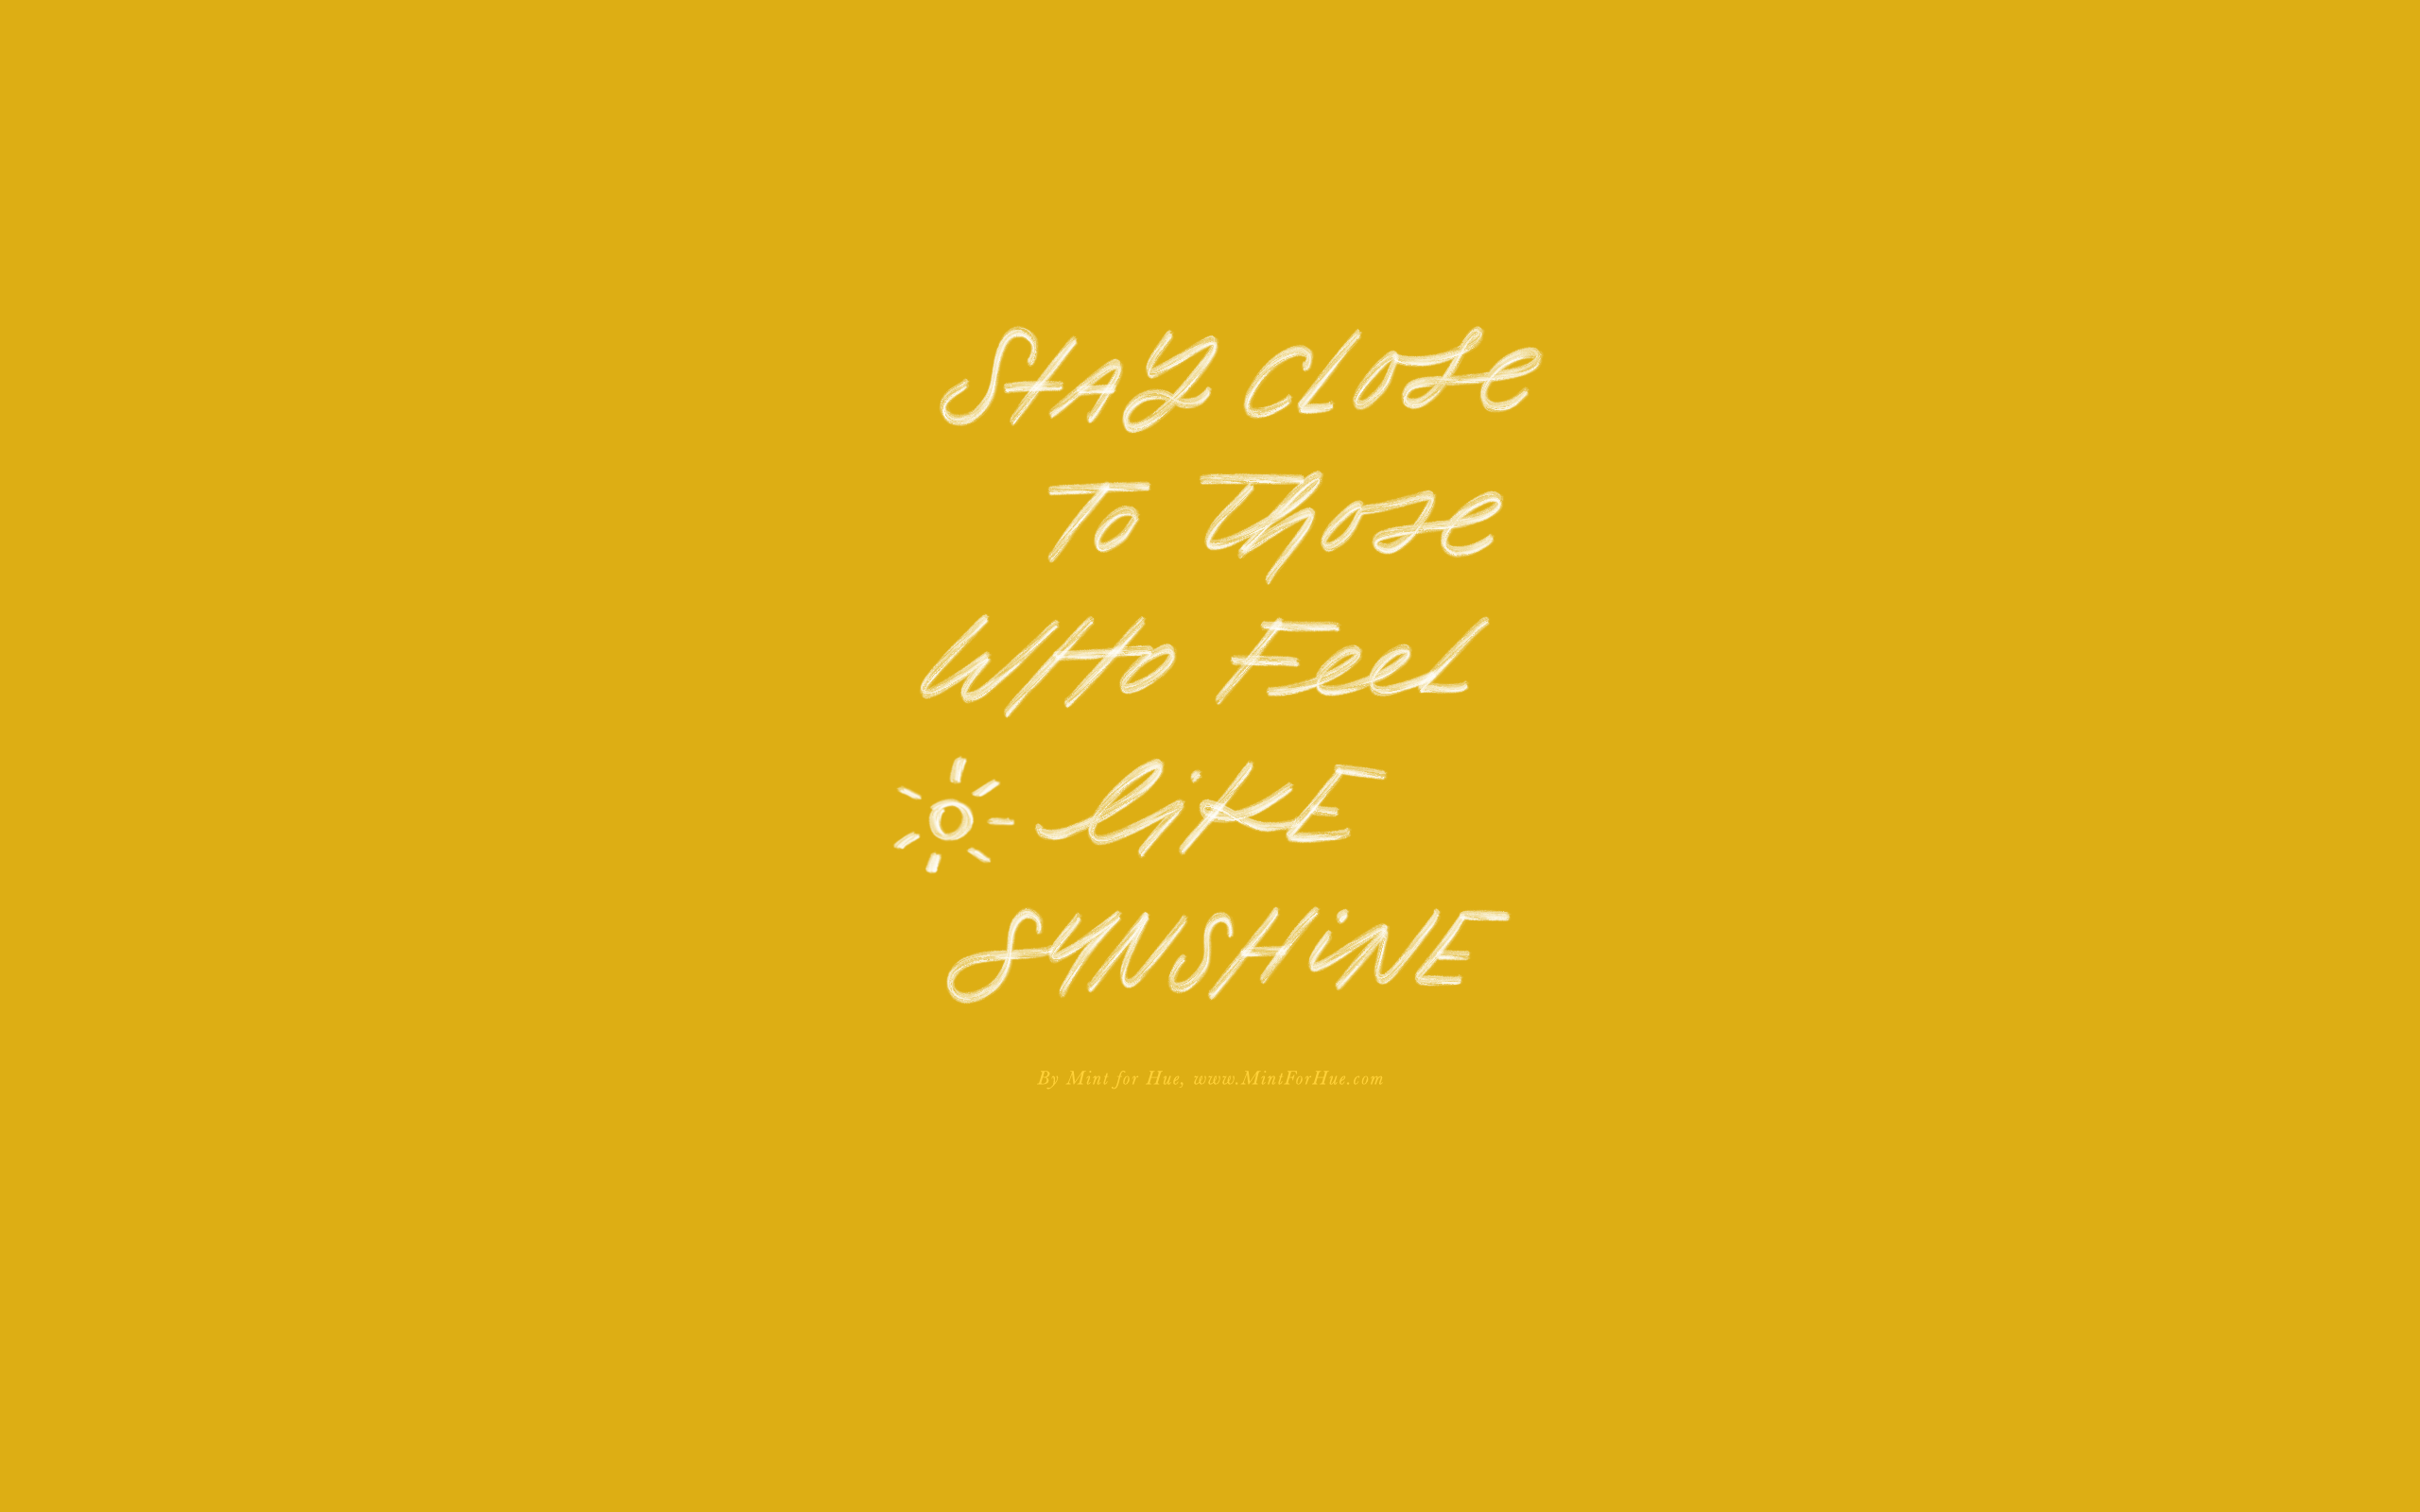 STAY Close
To Those
WHo Feel
liKE
SUNSHiNE
By Mint for Hue, www.MintForHue.com